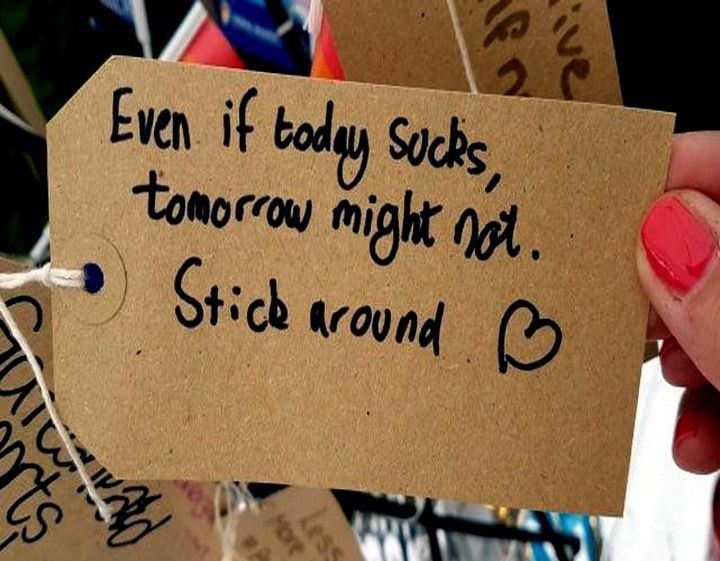 Even if today sucks,
tomorrow might not.
Stick around ♡
Less
More